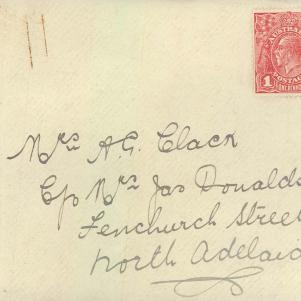 AUSTRALIA
POSTAGE
1
ONE PENNY
Mrs A.G. Clack
C/o Mrs Jas Donalds
Fenchurch Street
North Adelaid